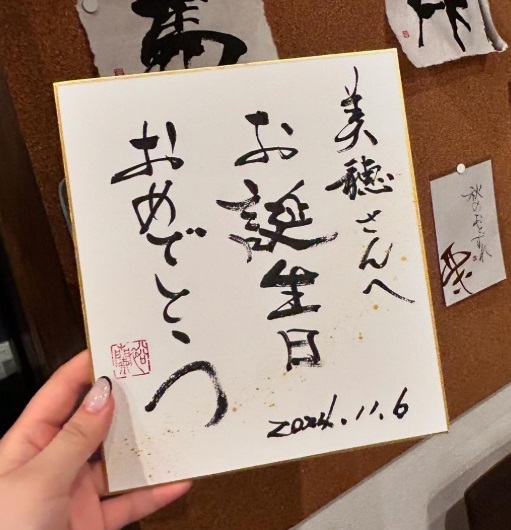 美穂さんへ
お誕生日
おめでとう
2024.11.6